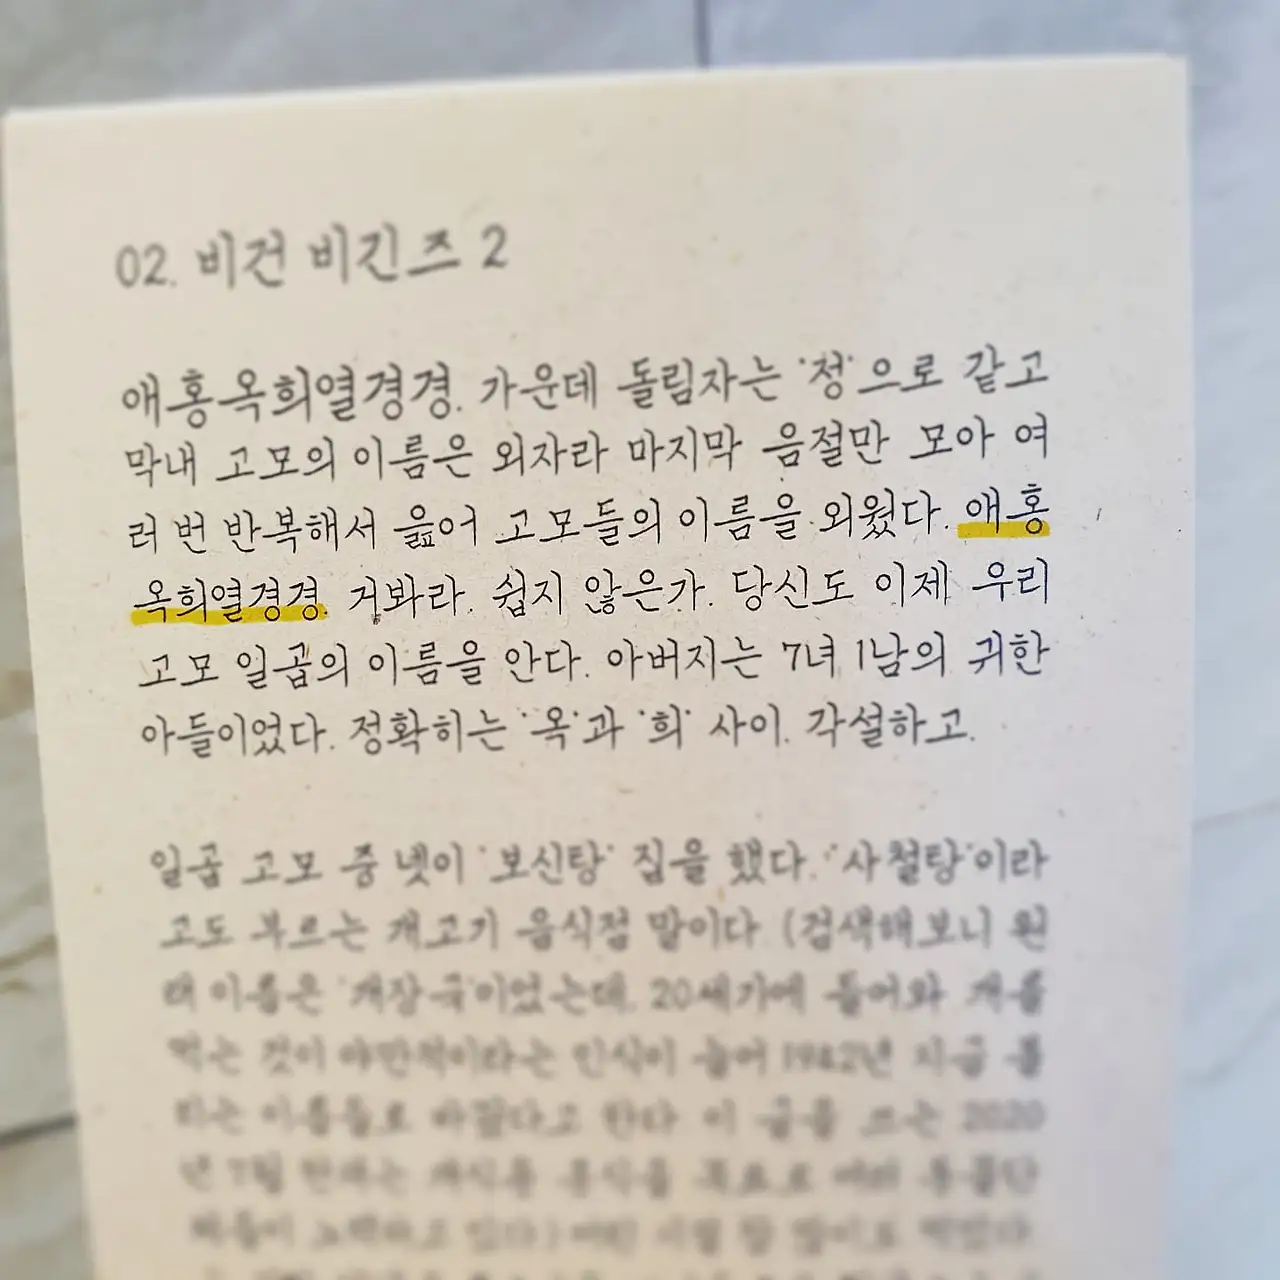 02. 비건 비긴즈 2
애홍옥희열경경. 가운데 돌림자는 '정'으로 같고
막내 고모의 이름은 외자라 마지막 음절만 모아 여
러 번 반복해서 읊어 고모들의 이름을 외웠다. 애홍
옥희열경경. 거봐라. 쉽지 않은가. 당신도 이제 우리
고모 일곱의 이름을 안다. 아버지는 7녀 1남의 귀한
아들이었다. 정확히는 '옥'과 '희' 사이. 각설하고.
일곱 고모 중 넷이 '보신탕' 집을 했다. '사철탕'이라
고도 부르는 개고기 음식점 말이다 (검색해보니 원
래 이름은 '개장국'이었는데, 20세기에 들어와 개를
먹는 것이 야만적이라는 인식이 늘어 1942년 지금 불
리는 이름들로 바꿨다고 한다 이 글을 쓰는 2020
년 7월 현재는